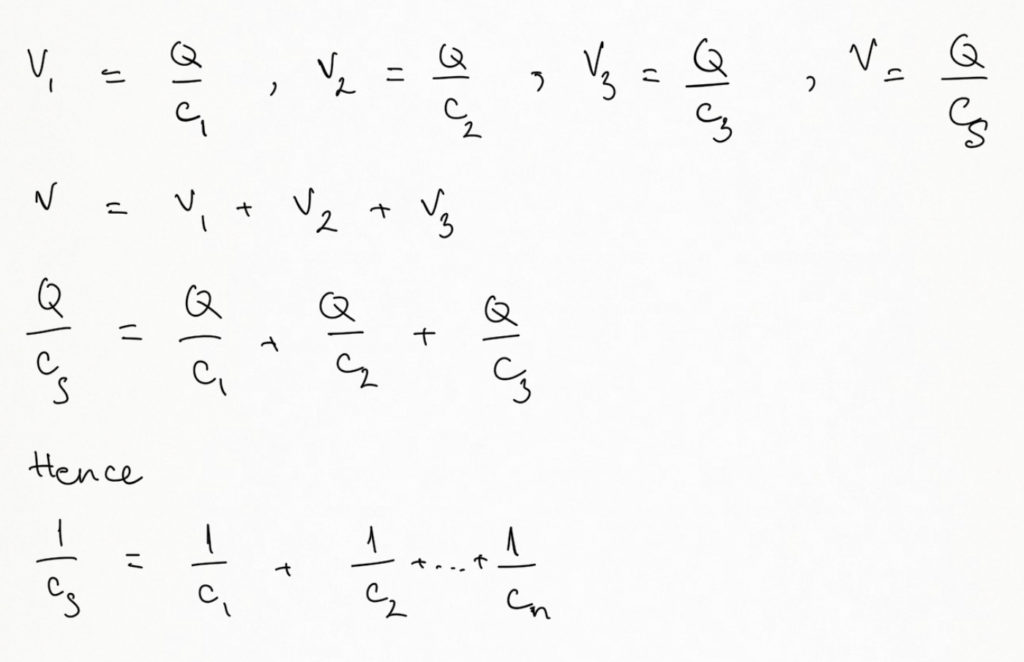 V₁ = Q/C₁ , V₂ = Q/C₂ , V₃ = Q/C₃ , V = Q/Cₛ
V = V₁ + V₂ + V₃
Q/Cₛ = Q/C₁ + Q/C₂ + Q/C₃
Hence
1/Cₛ = 1/C₁ + 1/C₂ +...+ 1/Cₙ